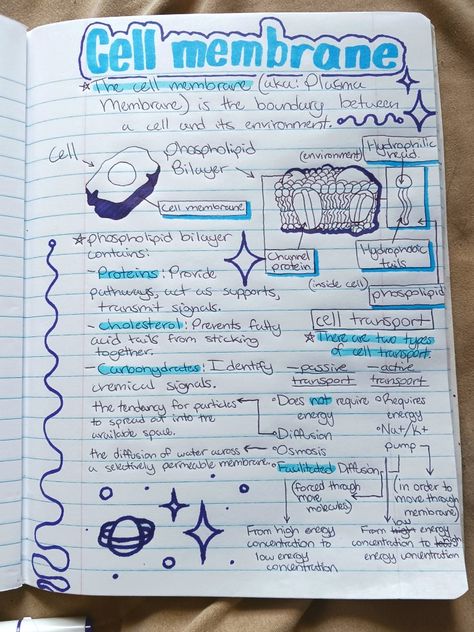 Cell membrane
☆ The cell membrane (aka: Plasma
Membrane) is the boundary between
a cell and its environment.
Cell
Cell membrane
Phospholipid
Bilayer
(environment)
Hydrophilic
head
Channel
protein
(inside cell)
Hydrophobic
tails
phospolipid
☆ phospholipid bilayer
contains:
- Proteins: Provide
pathways, act as supports,
transmit signals.
- cholesterol: Prevents fatty
acid tails from sticking
together.
- Carbohydrates: Identify
chemical signals.
cell transport
☆ There are two types
of cell transport.
- passive
transport
° Does not require
energy
° Diffusion
the tendency for particles
to spread out into the
available space.
° Osmosis
the diffusion of water across
a selectively permeable membrane.
° Facilitated Diffusion
(forced through
more
molecules)
From high energy
concentration to
low energy
concentration
- active
transport
° Requires
energy
° Na+/K+
pump
(in order to
move through
membrane)
From high low energy
concentration to low high
energy concentration